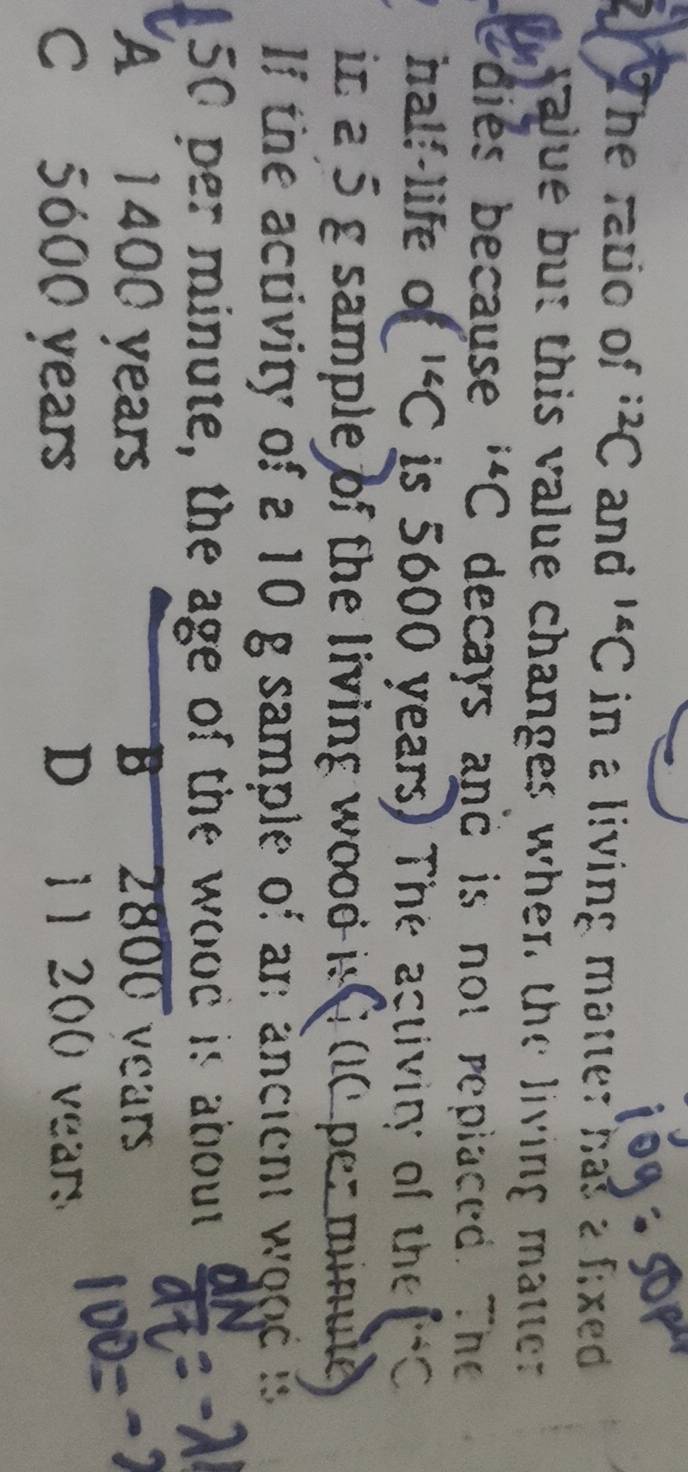 The ratio of ¹²C and ¹⁴C in a living matter has a fixed
value but this value changes when the living matter
dies because ¹⁴C decays and is not replaced. The
half-life of ¹⁴C is 5600 years. The activity of the ¹⁴C
in a 5 g sample of the living wood is per minute.
If the activity of a 10 g sample of an ancient wood is
50 per minute, the age of the wood is about
A 1400 years B 2800 years
C 5600 years D 11 200 years
10g = 50 per
dN/dt = -λ
100 = -λ